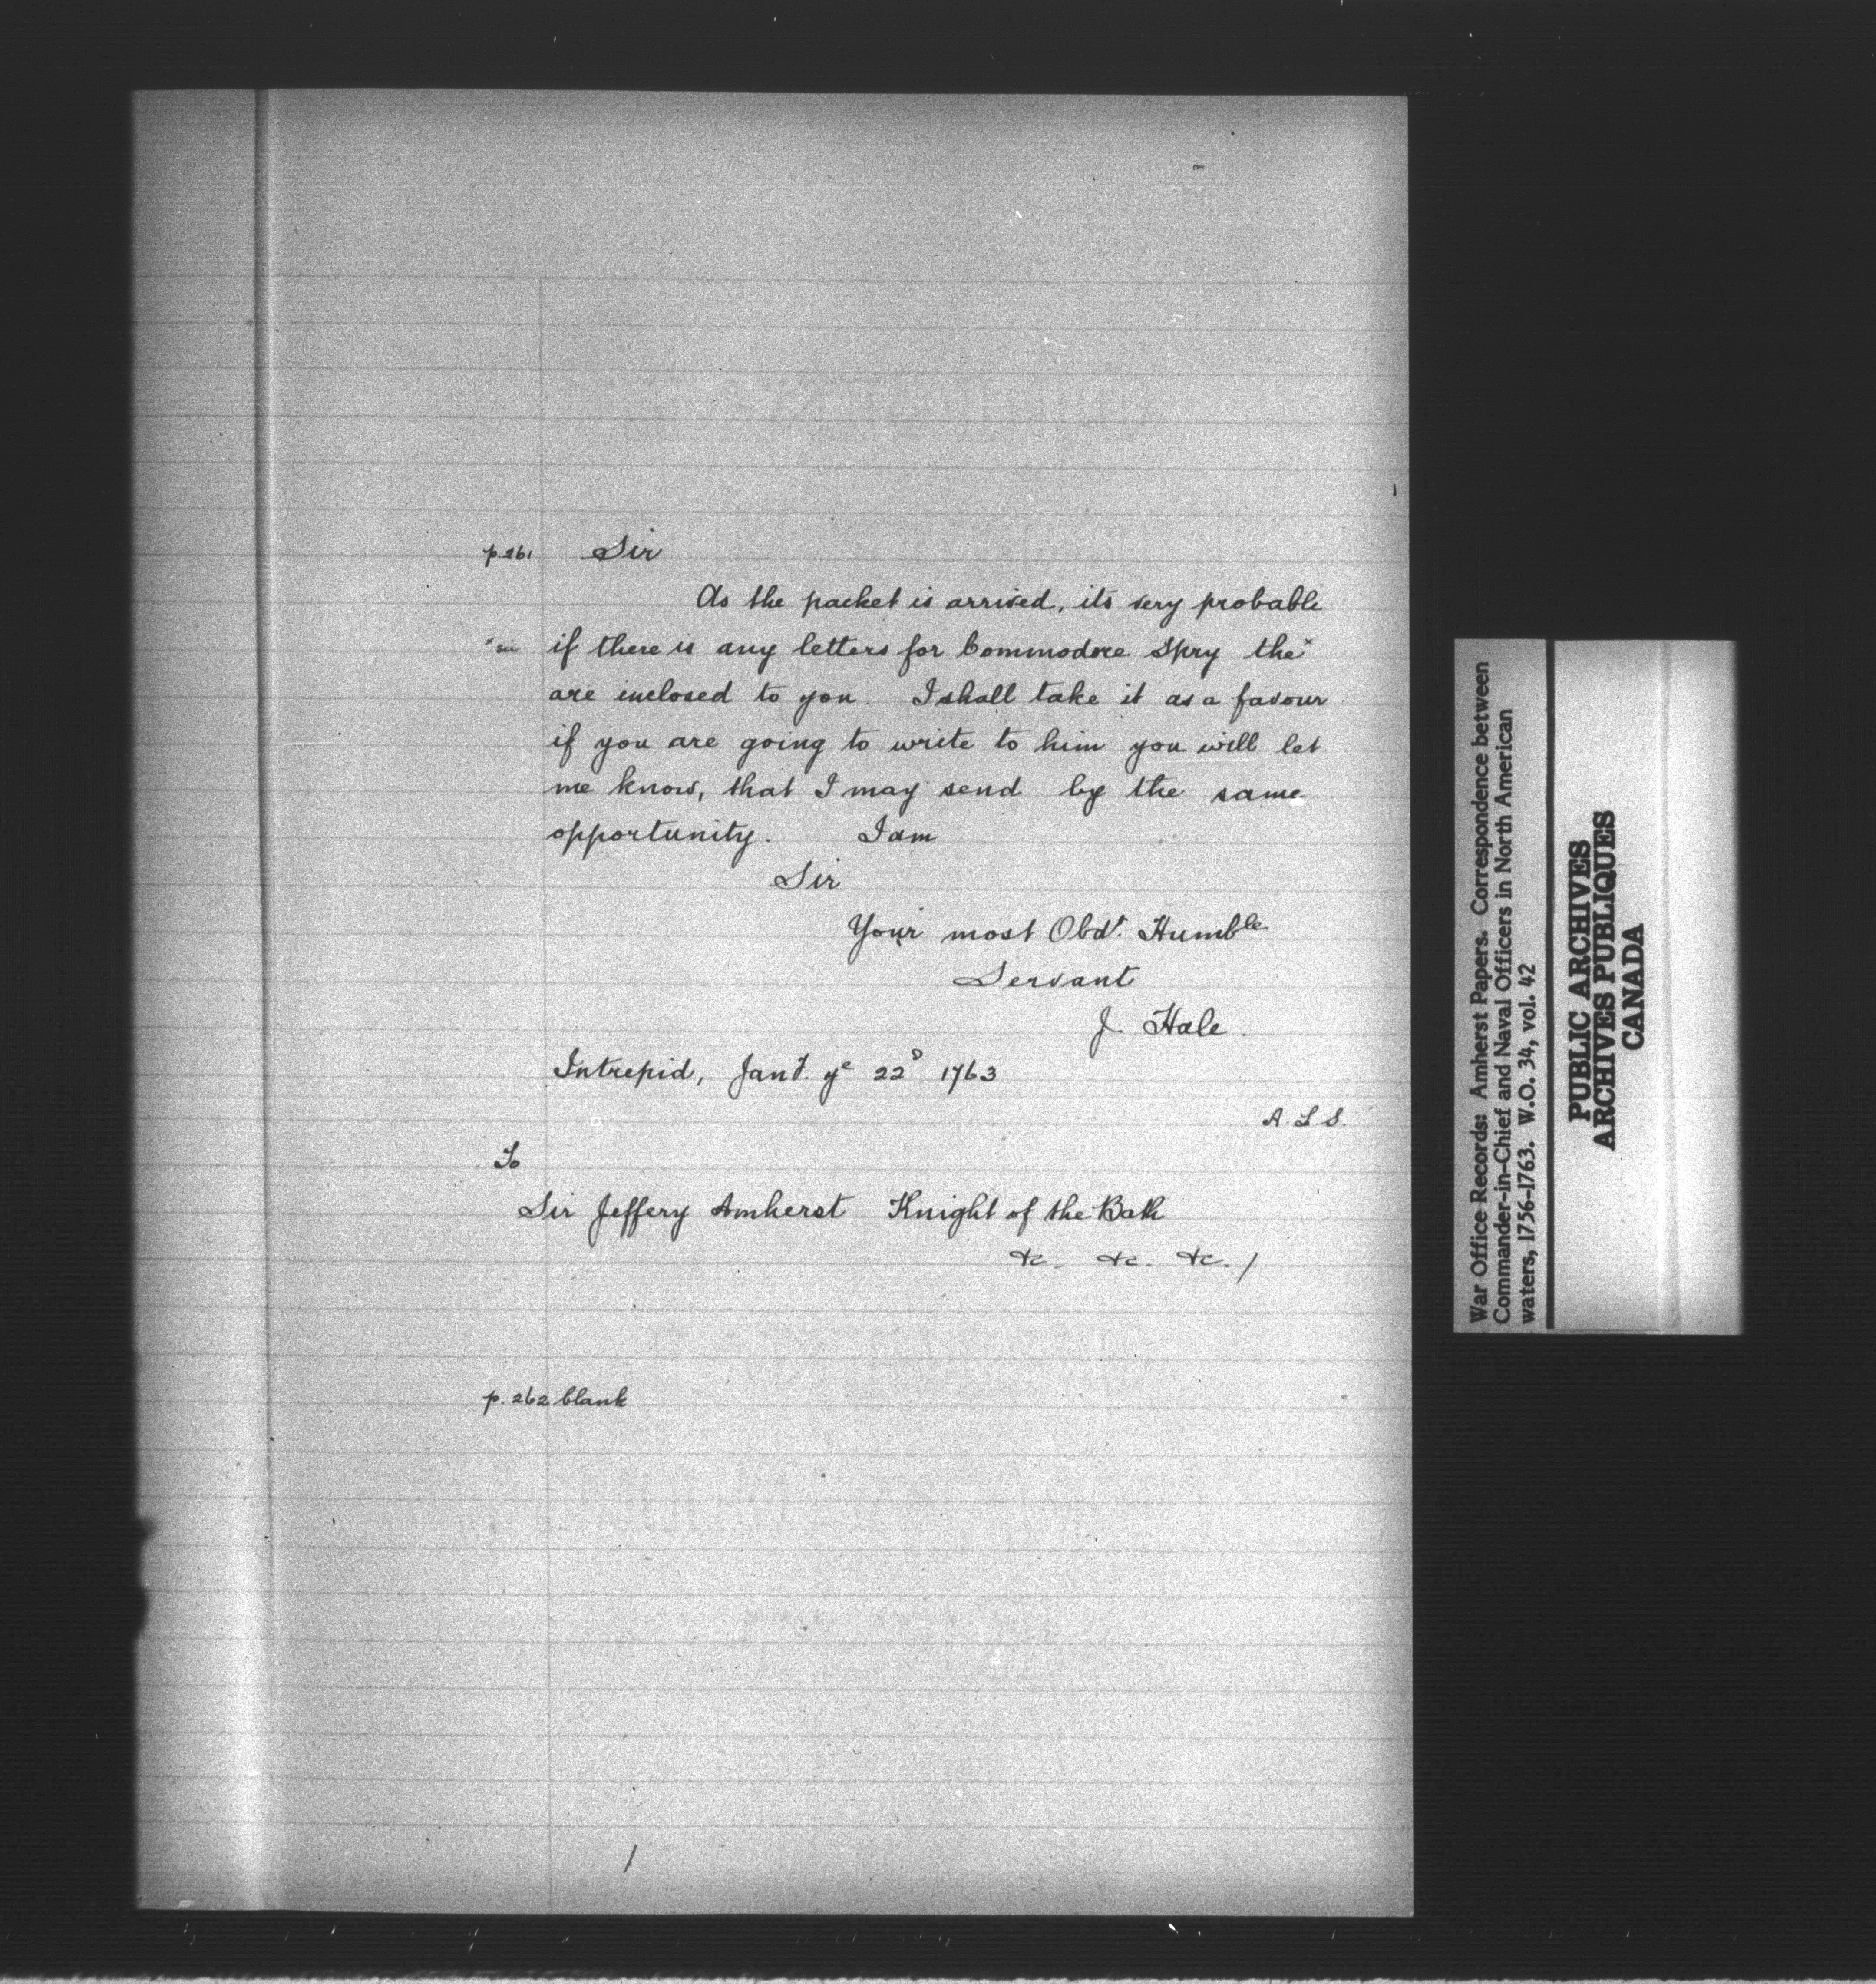 p.261 Sir
As the packet is arrived, its very probable
*sic if there is any letters for Commodore Spry the*
are inclosed to you. I shall take it as a favour
if you are going to write to him you will let
me know, that I may send by the same
opportunity. I am
Sir
Your most Obdt. Humble
Servant
J. Hale.
Intrepid, Jany. ye 22D 1763
A. L S.
To
Sir Jeffery Amherst Knight of the Bath
&c. &c. &c. /
p. 262 blank
/
War Office Records: Amherst Papers. Correspondence between
Commander-in-Chief and Naval Officers in North American
waters, 1756-1763. W.O. 34, vol. 42
PUBLIC ARCHIVES
ARCHIVES PUBLIQUES
CANADA